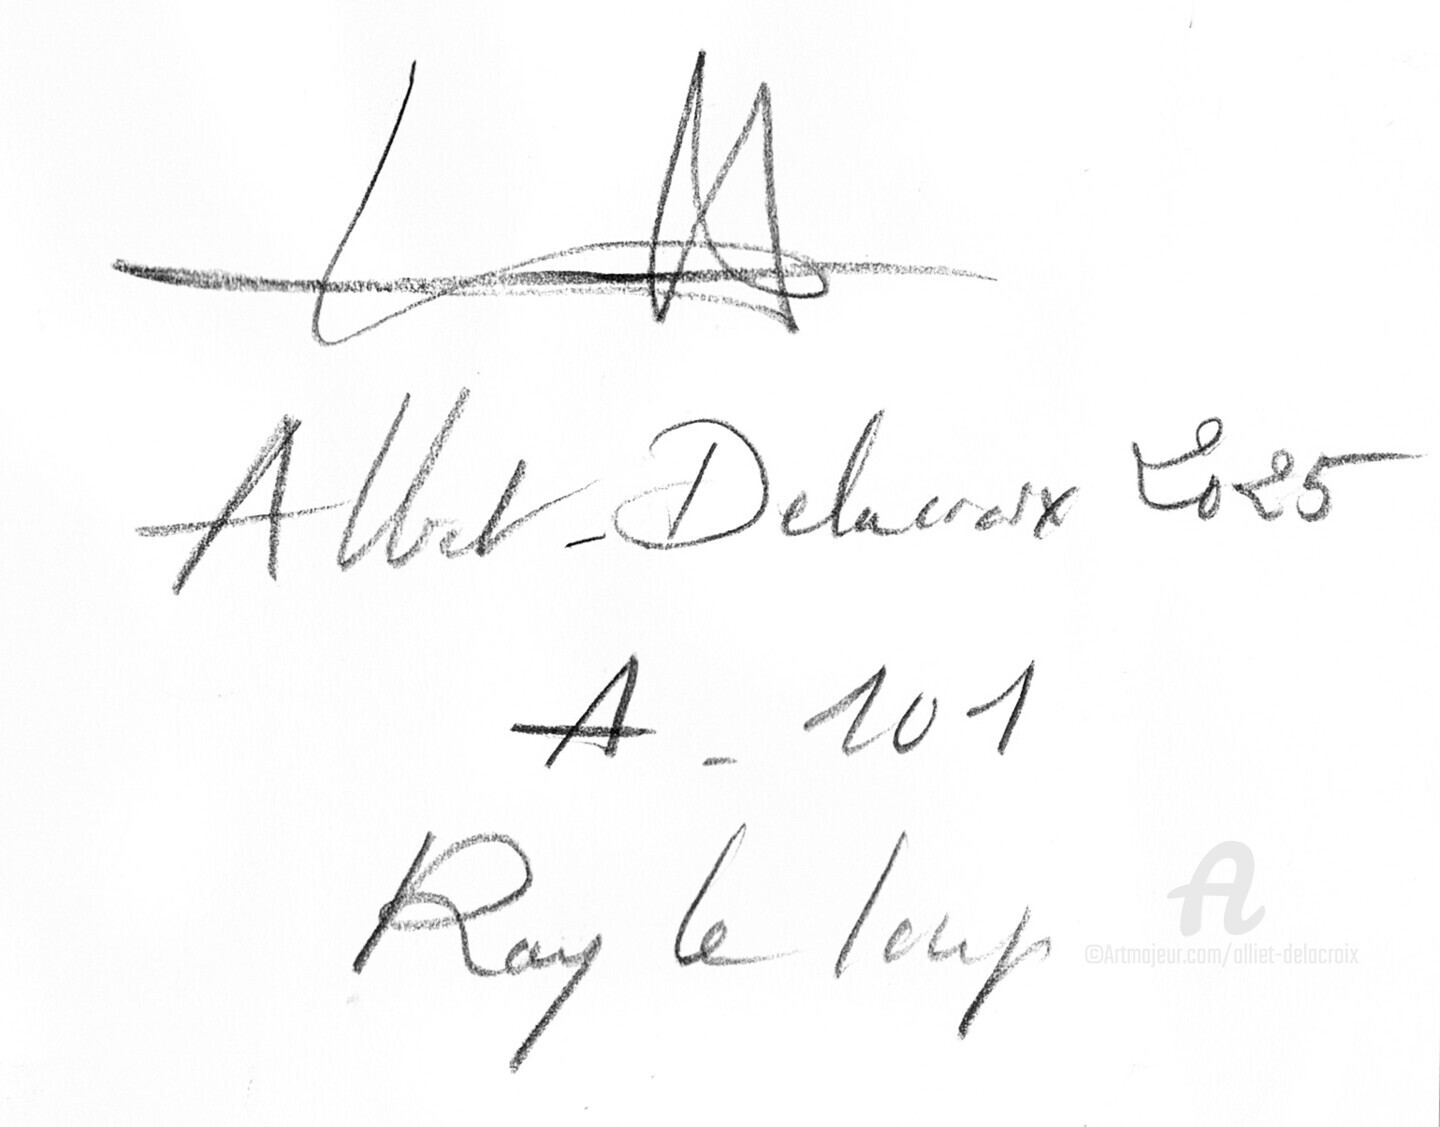 Alliet-Delacroix 2025
A - 101
Ray le loup
©Artmajeur.com/alliet-delacroix